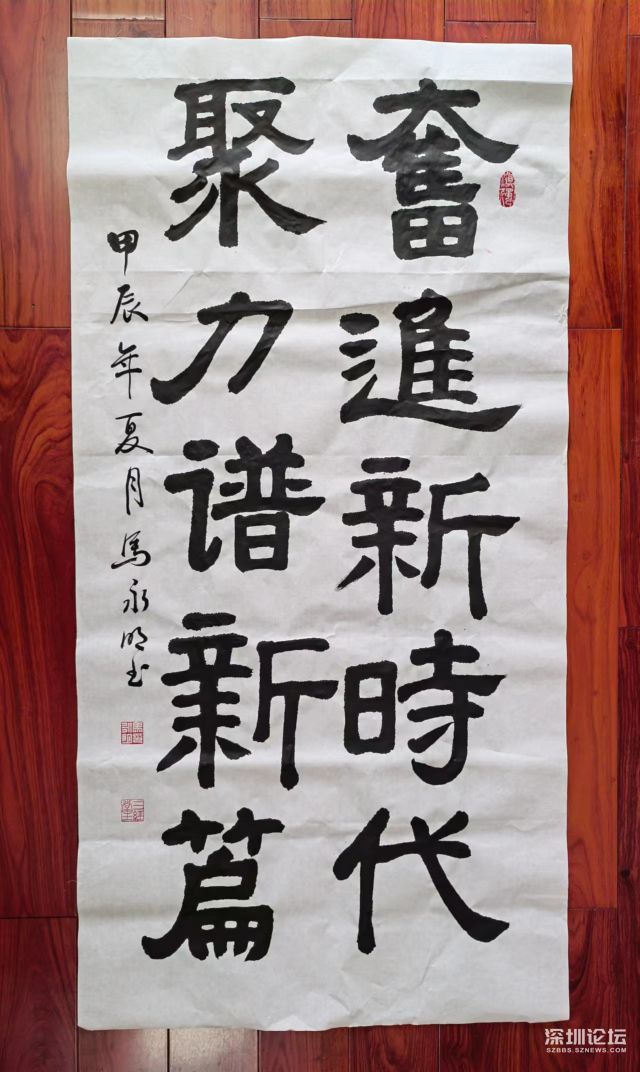 奮進新時代
聚力谱新篇
甲辰年夏月馬永明书
深圳论坛
SZBBS.SZNEWS.COM